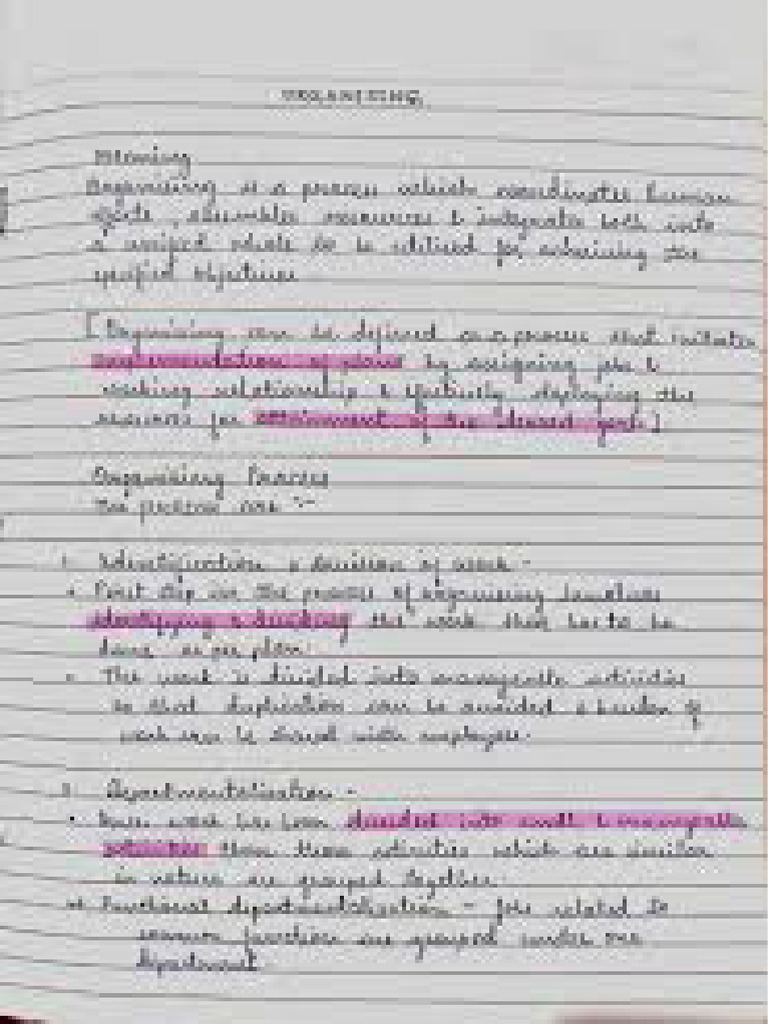 ORGANISING
Meaning
Organising is a process which coordinates human
efforts, assembles resources & integrates both into
a unified whole to be utilised for achieving the
specified objectives
[Organising can be defined as a process that initiates
implementation of plans by assigning jobs &
working relationship & effectively deploying the
resources for attainment of the desired goals]
Organising Process
The process are :-
1. Identification & division of work -
First step in the process of organising involves
identifying & dividing the work that has to be
done as per plan.
The work is divided into manageable activities
so that duplication can be avoided & burden of
work can be shared with employees.
Departmentalisation -
work has been divided into small & manageable
activities then those activities which are similar
in nature are grouped together.
Functional departmentalization - jobs related to
common function are grouped under one
department.